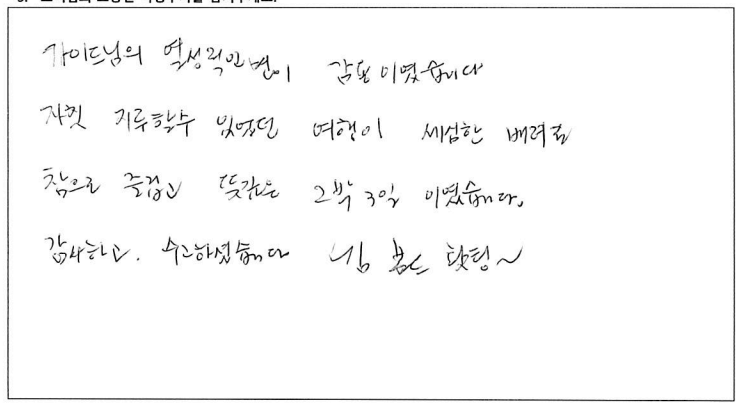 가이드님의 열성적인면이 감동이였습니다
자칫 지루할수 있었던 여행이 세심한 배려로
참으로 즐겁고 뜻깊은 2박 3일 이였습니다.
감사하고. 수고하셨습니다 홧팅~